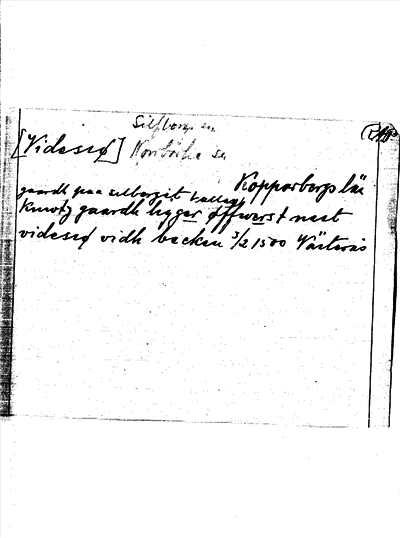 Silfbergs sn
[Videsiø] Norrbärke sn
Kopparbergs län
gaardh paa silbergit kallas
Knwtz gaardh ligger øffwerst nest
videsiø vidh becken 3/2 1500 Västerås